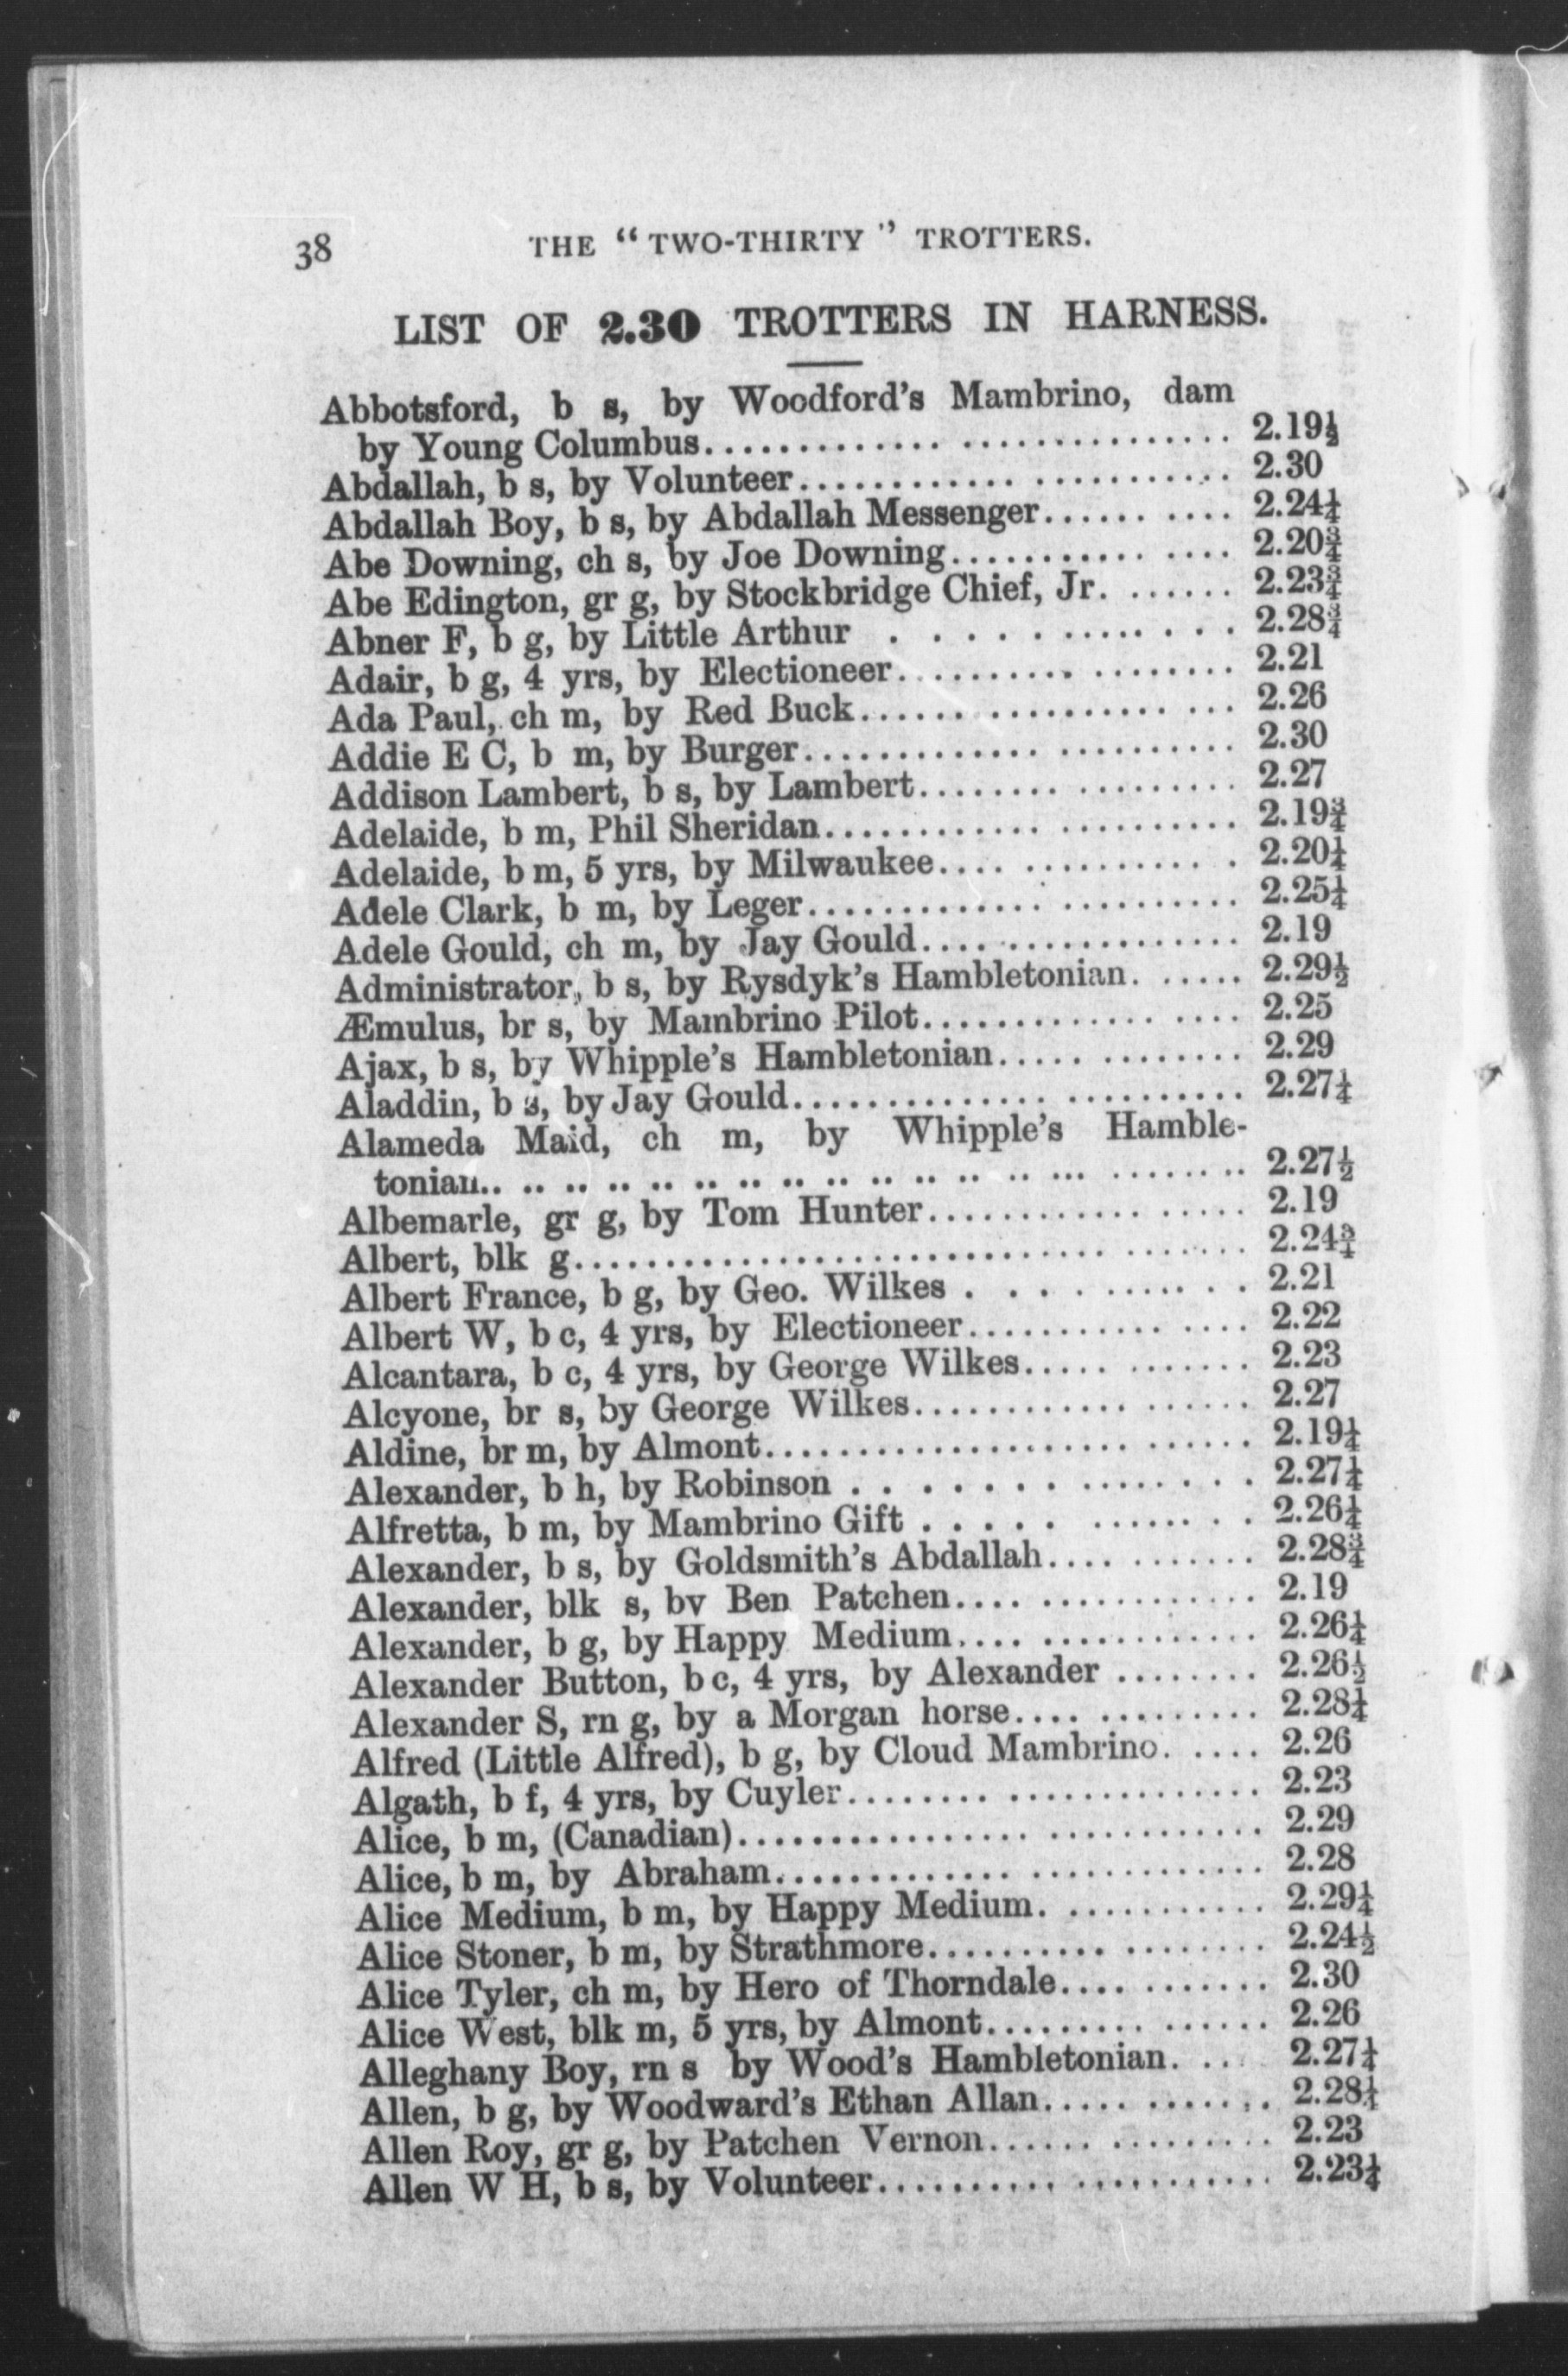 38 THE “ TWO-THIRTY ” TROTTERS.
LIST OF 2.30 TROTTERS IN HARNESS.
Abbotsford, b s, by Woodford's Mambrino, dam
by Young Columbus.............. ............... 2.19½
Abdallah, b s, by Volunteer............. ........... 2.30
Abdallah Boy, b s, by Abdallah Messenger...... .... 2.24¼
Abe Downing, ch s, by Joe Downing........... .... 2.20¾
Abe Edington, gr g, by Stockbridge Chief, Jr. ...... 2.23¾
Abner F, b g, by Little Arthur . . . . . ...... . . . 2.28¾
Adair, b g, 4 yrs, by Electioneer.......... ........ 2.21
Ada Paul, ch m, by Red Buck...... ........... ... 2.26
Addie E C, b m, by Burger............. .......... 2.30
Addison Lambert, b s, by Lambert........ ......... 2.27
Adelaide, b m, Phil Sheridan............ .......... 2.19¾
Adelaide, b m, 5 yrs, by Milwaukee.... ......... . . 2.20¼
Adele Clark, b m, by Leger............. .......... 2.25¼
Adele Gould, ch m, by Jay Gould.... ............. 2.19
Administrator, b s, by Rysdyk's Hambletonian. ...... 2.29½
Æmulus, br s, by Mambrino Pilot............. .... 2.25
Ajax, b s, by Whipple's Hambletonian..... ........ 2.29
Aladdin, b s, by Jay Gould.............. .......... 2.27¼
Alameda Maid, ch m, by Whipple's Hamble-
tonian.. .. .. .. .. .. .. .. .. .. .. .. .. ... ........ 2.27½
Albemarle, gr g, by Tom Hunter............ ..... 2.19
Albert, blk g.............................. ....... 2.24¾
Albert France, b g, by Geo. Wilkes . . . . ..... . . 2.21
Albert W, b c, 4 yrs, by Electioneer........... .... 2.22
Alcantara, b c, 4 yrs, by George Wilkes..... ....... 2.23
Alcyone, br s, by George Wilkes............ ...... 2.27
Aldine, br m, by Almont.................... ...... 2.19¼
Alexander, b h, by Robinson . . . . . . . ....... . . 2.27¼
Alfretta, b m, by Mambrino Gift . . . . . ...... . . 2.26¼
Alexander, b s, by Goldsmith's Abdallah.... ....... 2.28¾
Alexander, blk s, by Ben Patchen.... ............ 2.19
Alexander, b g, by Happy Medium.... ............ 2.26¼
Alexander Button, b c, 4 yrs, by Alexander ........ 2.26½
Alexander S, rn g, by a Morgan horse.... ......... 2.28¼
Alfred (Little Alfred), b g, by Cloud Mambrino. .... 2.26
Algath, b f, 4 yrs, by Cuyler........ .............. 2.23
Alice, b m, (Canadian)................ ............ 2.29
Alice, b m, by Abraham............. ............. 2.28
Alice Medium, b m, by Happy Medium. ........... 2.29¼
Alice Stoner, b m, by Strathmore.......... ........ 2.24½
Alice Tyler, ch m, by Hero of Thorndale.... ....... 2.30
Alice West, blk m, 5 yrs, by Almont......... ...... 2.26
Alleghany Boy, rn s by Wood's Hambletonian. ... 2.27¼
Allen, b g, by Woodward's Ethan Allan..... ....... 2.28¼
Allen Roy, gr g, by Patchen Vernon...... ......... 2.23
Allen W H, b s, by Volunteer.......... ........... 2.23¼